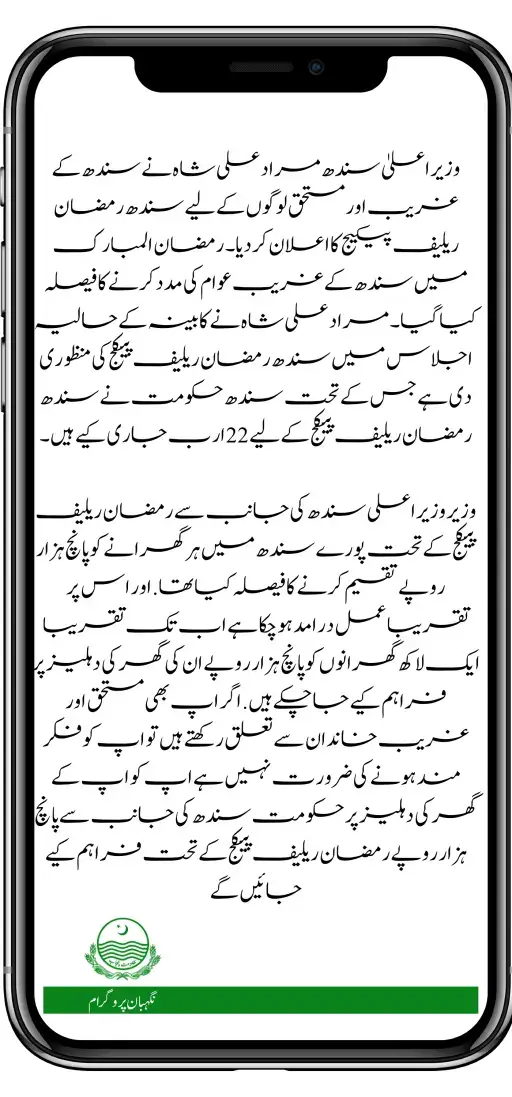 وزیر اعلیٰ سندھ مراد علی شاہ نے سندھ کے
غریب اور مستحق لوگوں کے لیے سندھ رمضان
ریلیف پیکیج کا اعلان کر دیا۔ رمضان المبارک
میں سندھ کے غریب عوام کی مدد کرنے کا فیصلہ
کیا گیا۔ مراد علی شاہ نے کابینہ کے حالیہ
اجلاس میں سندھ رمضان ریلیف پیکج کی منظوری
دی ہے جس کے تحت سندھ حکومت نے سندھ
رمضان ریلیف پیکج کے لیے 22 ارب جاری کیے ہیں۔
وزیر وزیر اعلی سندھ کی جانب سے رمضان ریلیف
پیکج کے تحت پورے سندھ میں ہر گھرانے کو پانچ ہزار
روپے تقسیم کرنے کا فیصلہ کیا تھا. اور اس پر
تقریبا عمل درامد ہو چکا ہے اب تک تقریبا
ایک لاکھ گھرانوں کو پانچ ہزار روپے ان کی گھر کی دہلیز پر
فراہم کیے جا چکے ہیں. اگر اپ بھی مستحق اور
غریب خاندان سے تعلق رکھتے ہیں تو اپ کو فکر
مند ہونے کی ضرورت نہیں ہے اپ کو اپ کے
گھر کی دہلیز پر حکومت سندھ کی جانب سے پانچ
ہزار روپے رمضان ریلیف پیکج کے تحت فراہم کیے
جائیں گے
نگہبان پروگرام